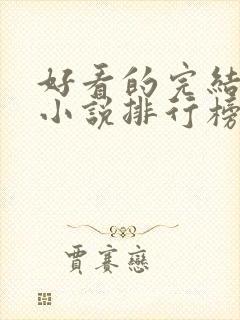 好看的完結
小說排行榜
賈賽戀